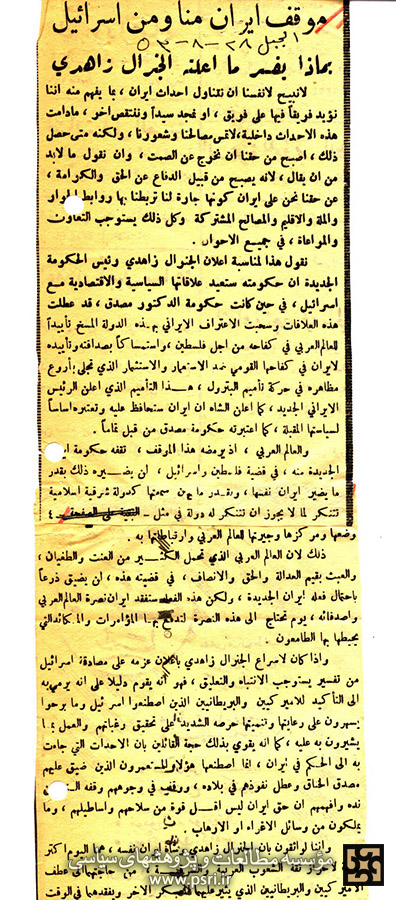 موقف ايران منا ومن اسرائيل
الجبل ٢٨-٨-٥٣
بماذا يفسر ما اعلنه الجنرال زاهدي
لانبيح لانفسنا ان نتناول احداث ايران ، بما يفهم منه اننا
نؤيد فريقاً فيها على فريق ، او نمجد سيداً وننتقص اخر ، مادامت
هذه الاحداث داخلية ، لاتمس مصالحنا وشعورنا ، ولكنه متى حصل
ذلك ، اصبح من حقنا ان نخرج عن الصمت ، وان نقول ما لابد
من ان يقال ، لانه يصبح من قبيل الدفاع عن الحق والكرامة ،
عن حقنا نحن على ايران كونها جارة لنا تربطنا بها روابط الجوار
والملة والاقليم والمصالح المشتركة وكل ذلك يستوجب التعاون
والمراعاة ، في جميع الاحوال .
نقول هذا لمناسبة اعلان الجنرال زاهدي رئيس الحكومة
الجديدة ان حكومته ستعيد علاقاتها السياسية والاقتصادية مع
اسرائيل ، في حين كانت حكومة الدكتور مصدق ، قد عطلت
هذه العلاقات وسحبت الاعتراف الايراني بهذه الدولة المسخ تأييداً
للعالم العربي في كفاحه من اجل فلسطين ، واستمساكاً بصداقته وتأييده
لايران في كفاحها القومي ضد الاستعمار والاستثمار الذي تجلى بأروع
مظاهره في حركة تأميم البترول ، هذا التأميم الذي اعلن الرئيس
الايراني الجديد ، كما اعلن الشاه ان ايران ستحافظ عليه وتعتبره اساساً
لسياستها المقبلة ، كما اعتبرته حكومة مصدق من قبل تماماً .
والعالم العربي ، اذ يرمضه هذا الموقف ، تقفه حكومة
الجديدة منه ، في قضية فلسطين واسرائيل ، لن يضيره ذلك بقدر
ما يضير ايران نفسها ، وبقدر من سمعتها كدولة شرقية اسلامية
تتنكر لما لا يجوز ان تتنكر له دولة في مثل - البقية على الصفحة ٤
وضعها ومركزها وجيرتها للعالم العربي وارتباطاتها به .
ذلك لان العالم العربي الذي تحمل الكثير من العنت والطغيان ،
والعبث بقيم العدالة والحق والانصاف ، في قضيته هذه ، لن يضيق ذرعاً
باحتمال فعله ايران الجديدة ، ولكن هذه الفعلة ستفقد ايران نصرة العالم العربي
واصدقائه ، يوم تحتاج الى هذه النصرة لتدفع بها المؤامرات والمكائد التي
يحيطها بها الطامعون .
واذا كان لاسراع الجنرال زاهدي باعلان عزمه على مصادقة اسرائيل
من تفسير يستوجب الانتباه والتعليق ، فهو انه يقوم دليلا على انه يرمي به
الى التأكيد للاميركيين والبريطانيين الذين اصطنعوا اسرائيل وما برحوا
يسهرون على رعايتها وتنميتها حرصه الشديد على تحقيق رغباتهم والعمل بما
يشيرون به عليه ، كما انه يقوي بذلك حجة القائلين بان الاحداث التي جاءت
به الى الحكم في ايران ، انما اصطنعها هؤلاء المستعمرون الذين ضيق عليهم
مصدق الخناق وعطل نفوذهم في بلاده ، ووقف في وجوههم وقفة
نده وافهمهم ان حق ايران ليس اقل قوة من سلاحهم واساطيلهم ، وما
يملكون من وسائل الاغراء او الارهاب .
واننا لواثقون بان الجنرال زاهدي وشاه ايران نفسه ، هما اليوم اكثر
ثقة الشعوب العربية من حاجتهما الى عطف
الاميركيين والبريطانيين الذي يتغير الاخر ويفقدهما في الوقت
مؤسسه مطالعات و پژوهشهای سیاسی
www.psri.ir